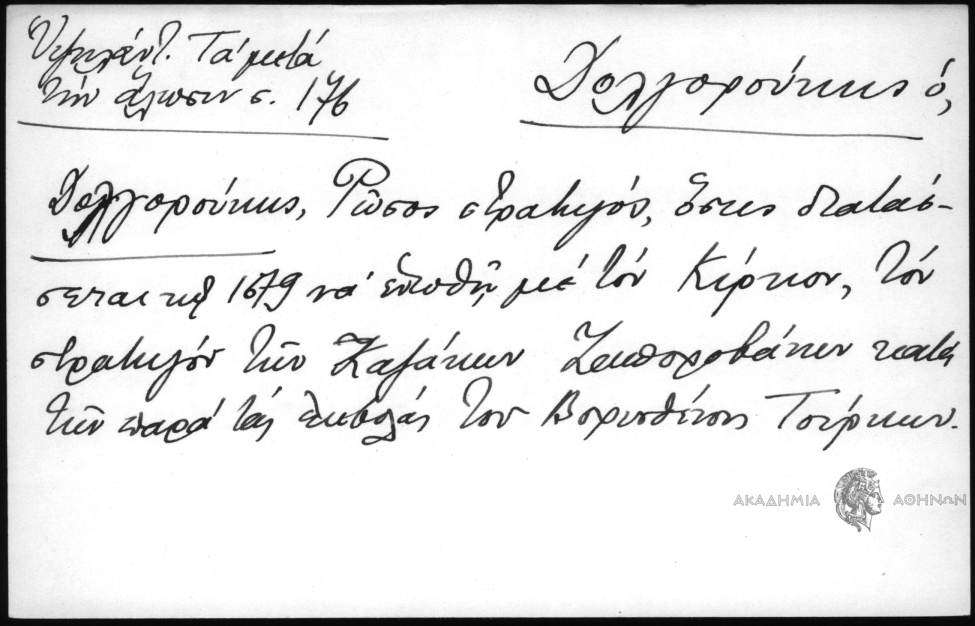 Ὑψηλάντ. Τά μετά
τήν ἅλωσιν σ. 176
Δολγορούκης ὁ,
Δολγορούκης, Ρῶσος στρατηγός, ὅστις διατάσ-
σεται τῷ 1679 νά ἑνωθῇ μέ τόν Κίρκον, τόν
στρατηγόν τῶν Καζάκων Ζαποροβάκων κατά
τῶν παρά τάς ἐκβολάς τοῦ Βορυσθένους Τούρκων.
ΑΚΑΔΗΜΙΑ ΑΘΗΝΩΝ